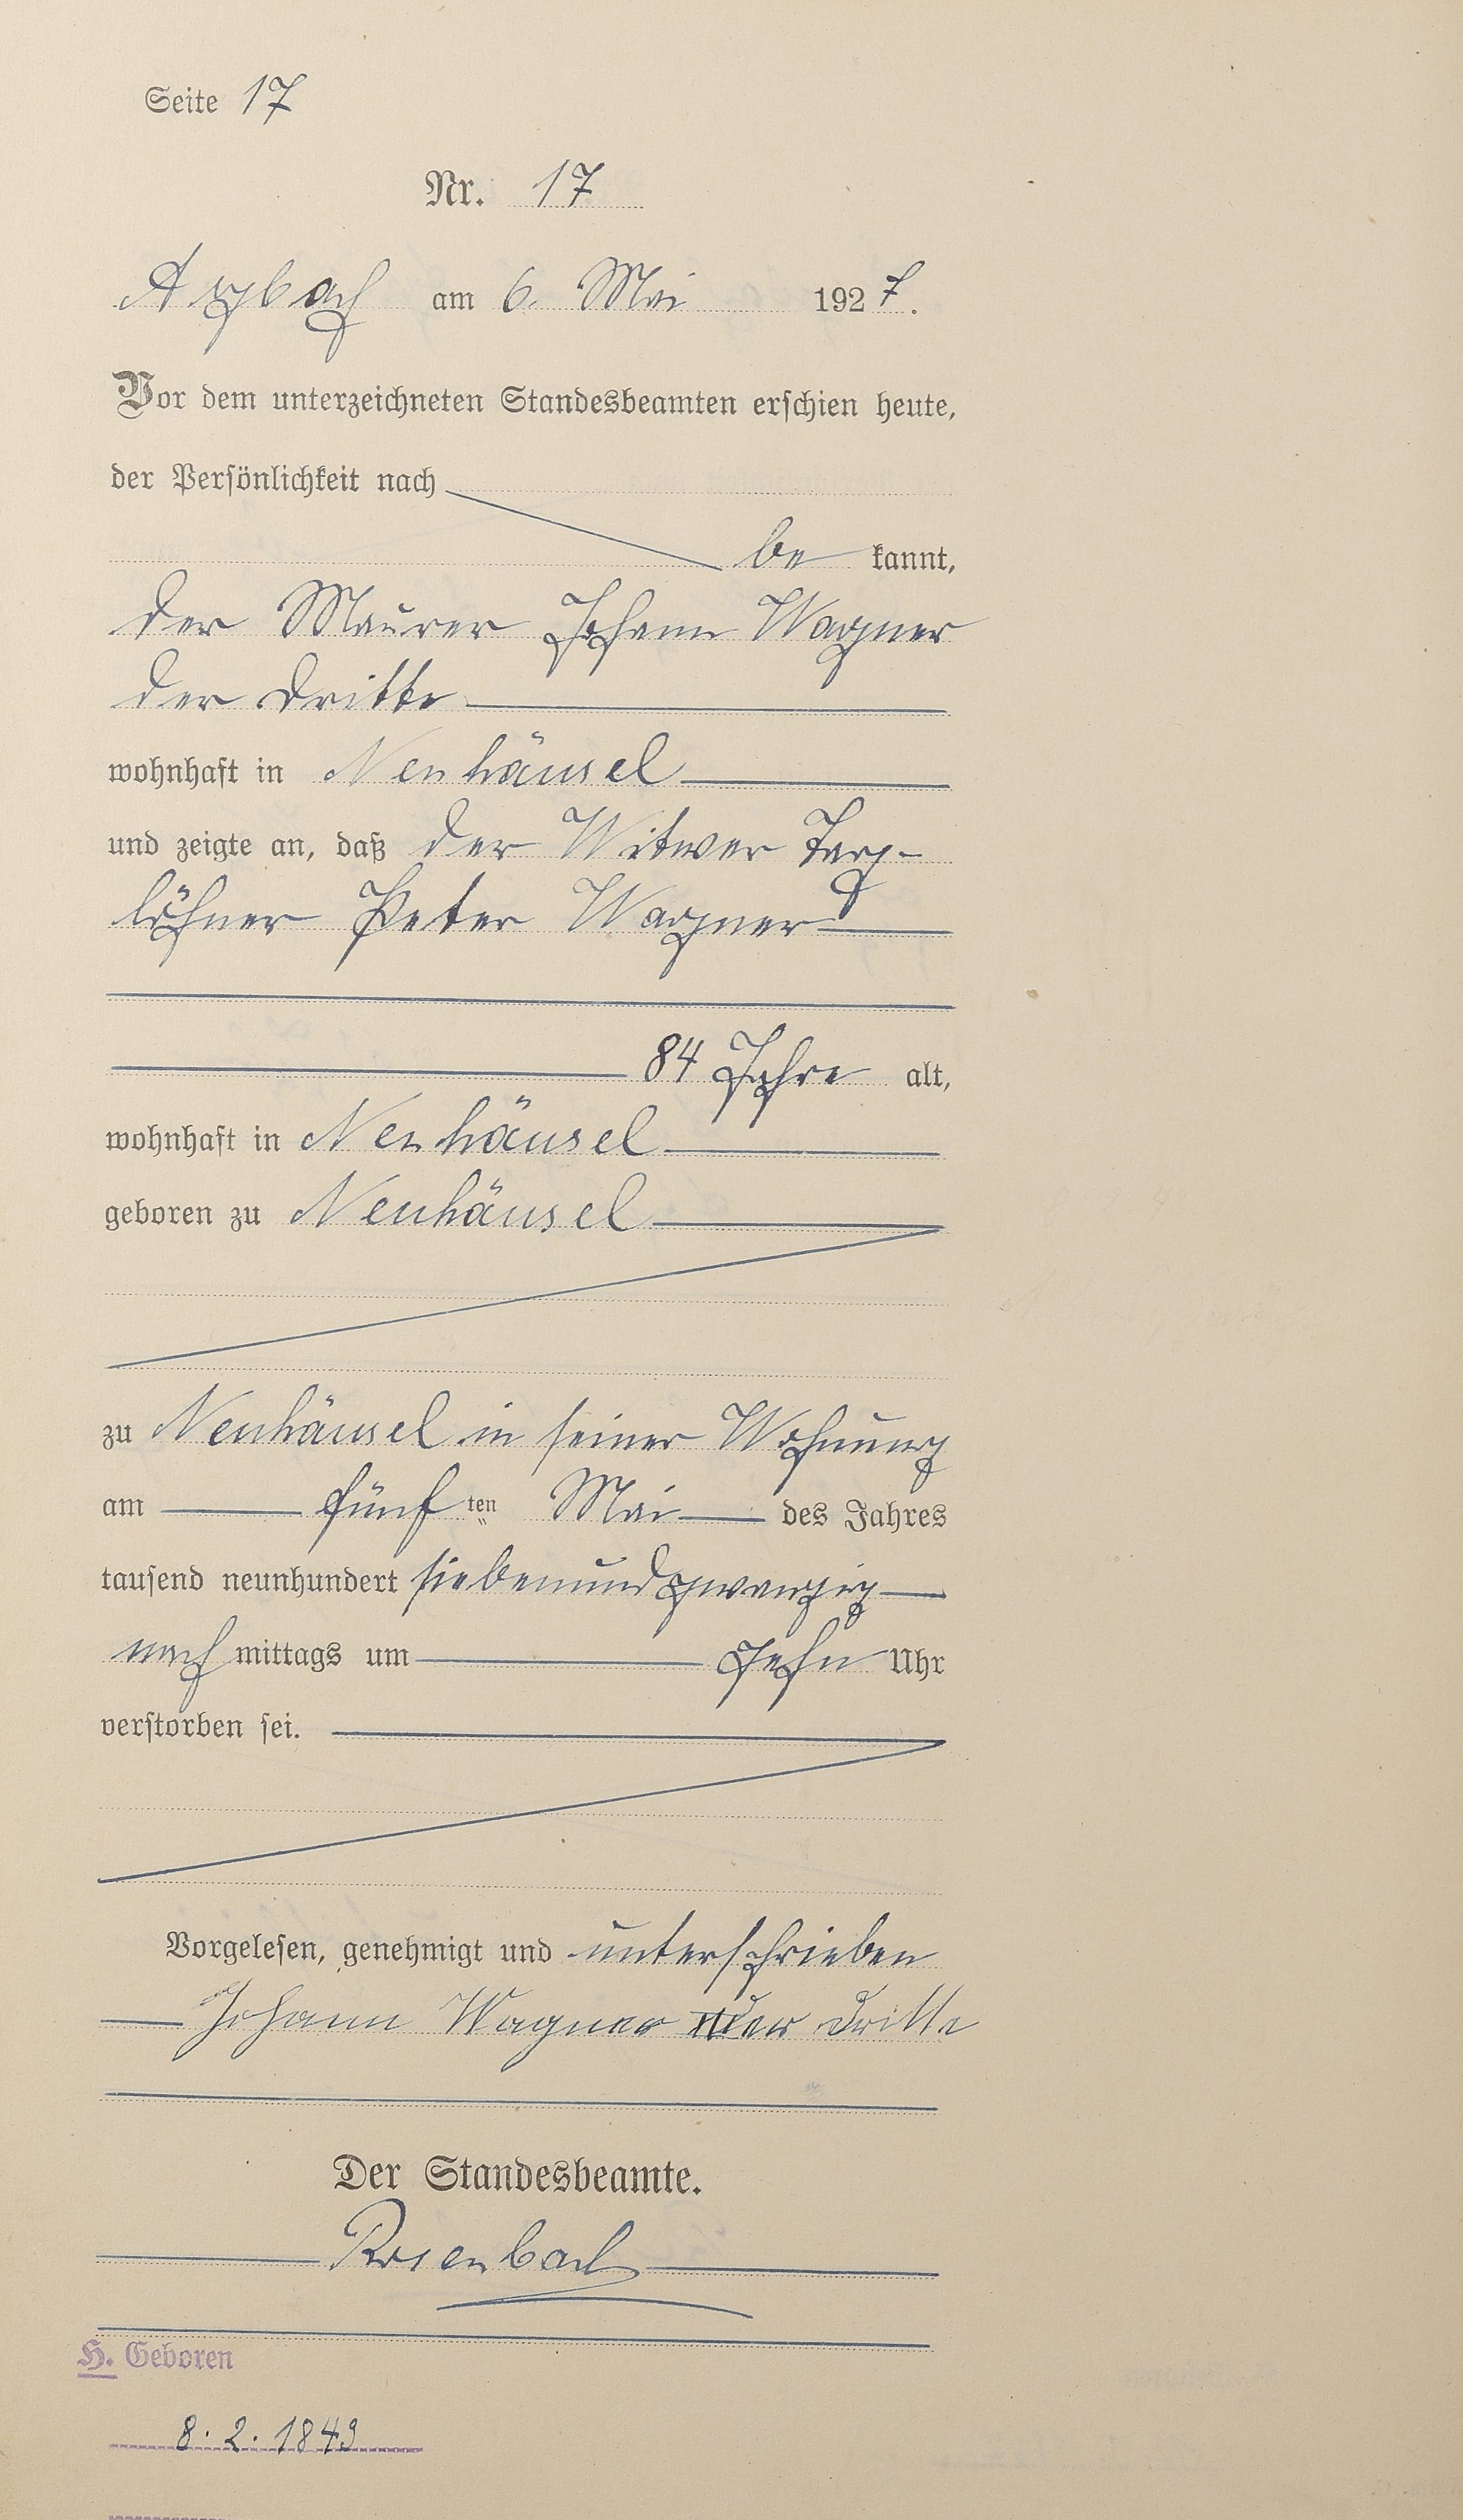 Seite 17
Nr. 17
Arzbach am 6. Mai 1927.
Vor dem unterzeichneten Standesbeamten erschien heute,
der Persönlichkeit nach
be kannt,
der Maurer Johann Wagner
der Dritte
wohnhaft in Neuhäusel
und zeigte an, daß der Witwer Tag-
löhner Peter Wagner
84 Jahre alt,
wohnhaft in Neuhäusel
geboren zu Neuhäusel
zu Neuhäusel in seiner Wohnung
am fünf ten Mai des Jahres
tausend neunhundert siebenundzwanzig
nach mittags um zehn Uhr
verstorben sei.
Vorgelesen, genehmigt und unterschrieben
Johann Wagner der Dritte
Der Standesbeamte.
Rosenbach
H. Geboren
8. 2. 1843